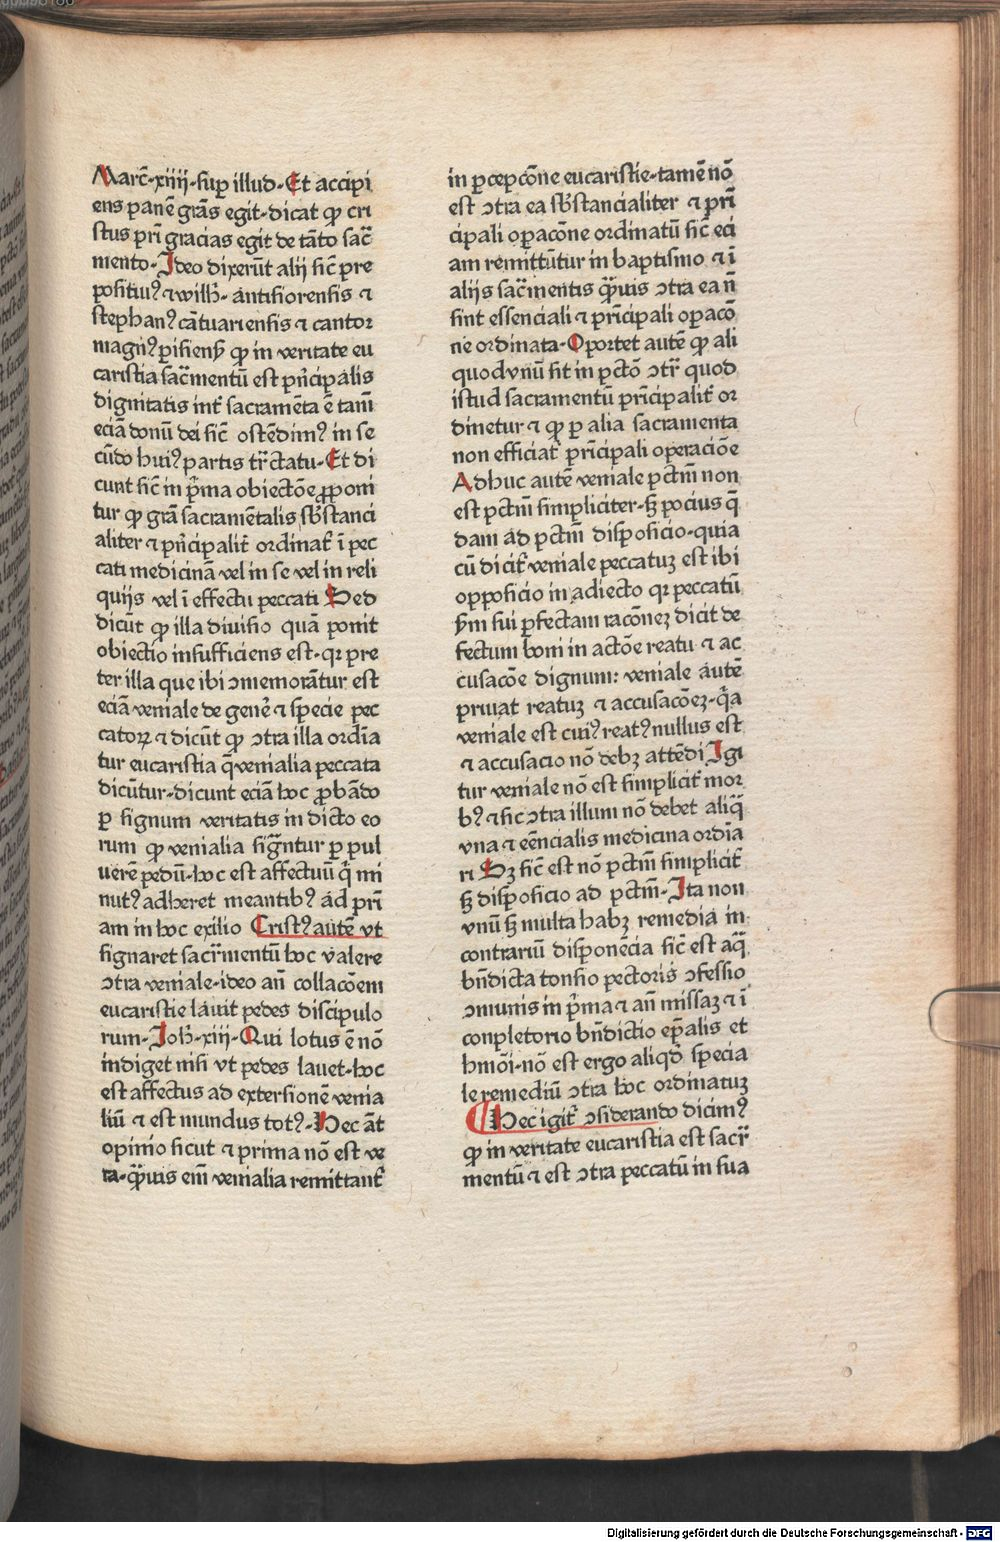 Marc̄·xiiij·suꝑ illud·Et accipi
ens panē gr̄as egit·dicat ꝙ cri
stus pr̄i gracias egit de tāto sac̄
mento·Ideo dixerūt alij sic̄ pre
positiuꝰ ⁊ wilh̄· antisiorensis ⁊
stephanꝰ cātuariensis ⁊ cantor
magnꝰ ꝑisiensꝭ ꝙ in veritate eu
caristia sac̄mentū est pn̄cipalis
dignitatis int̄ sacramēta ē tam̄
eciā donū dei sic̄ ostēdimꝰ in se
cūdo huiꝰ partis tr̄ctatu·Et di
cunt sic̄ in p̄ma obiectōe ꝓponi
tur ꝙ grā sacramētalis sb̄stanci
aliter ⁊ pn̄cipalit̄ ordinat̄ ī pec
cati medicinā vel in se vel in reli
quijs vel ī effectu peccati Sed
dicūt ꝙ illa diuisio quā ponit
obiectio insufficiens est·qꝛ pre
ter illa que ibi ↄmemorātur est
eciā veniale de gene᷒ ⁊ specie pec
catoꝝ ⁊ dicūt ꝙ ↄtra illa ordīa
tur eucaristia q̄ venialia peccata
dicūtur·dicunt eciā hoc ꝓbādo
ꝑ signum veritatis in dicto eo
rum ꝙ venialia sig̅ntur ꝑ pul
uerē pedū·hoc est affectuū q̄ mi
nutꝰ adheret meantibꝰ ad pr̄i
am in hoc exilio Cristꝰ autē vt
signaret sacr̄mentū hoc valere
ↄtra veniale·ideo an̄ collacōem
eucaristie lauit pedes discipulo
rum·Joh̄·xiij·Qui lotus ē nō
indiget nisi vt pedes lauet·hoc
est affectus ad extersionē venia
liū ⁊ est mundus totꝰ·Hec āt
opinio sicut ⁊ prima nō est ve
ra·q̄uis em̄ venialia remittant̄
in ꝑcepcōne eucaristie·tamē nō
est ↄtra ea sb̄stancialiter ⁊ pri̅
cipali oꝑacōne ordinatū sic̄ eci
am remittūtur in baptismo ⁊ ī
alijs sac̄mentis q̄uis ↄtra ea n̄
sint essenciali ⁊ pri̅cipali oꝑacō
ne ordinata·Oportet autē ꝙ ali
quod vnū sit in pctō ↄtr̄ quod
istud sacramentū pri̅cipalit̄ or
dinetur ⁊ ꝙ ꝑ alia sacramenta
non efficiat̄ pri̅cipali operaciōe
Adhuc autē veniale pctm̄ non
est pctm̄ simpliciter·sꝫ pocius q̄
dam ad pctm̄ dispoſicio·quia
cū dicit̄ veniale peccatuꝫ est ibi
opposicio in adiecto qꝛ peccatū
s̄m sui ꝑfectam racōneꝫ dicit de
fectum boni in actōe reatu ⁊ ac
cusacōe dignum: veniale autē
priuat reatuꝫ ⁊ accusacōeꝫ·q̄a
veniale est cuiꝰ reatꝰ nullus est
⁊ accusacio nō debꝫ attēdi Igi
tur veniale nō est simplicit̄ mor
bꝰ ⁊ sic ↄtra illum nō debet aliq̄
vna ⁊ eēncialis medicina ordīa
ri Sꝫ sic̄ est nō pctm̄ simplicit̄
sꝫ disposicio ad pctm̄·Ita non
vnū sꝫ multa habꝫ remedia in
contrariū disponēcia sic̄ est aq̄
bn̄dicta tonsio pectoris ↄfessio
ↄmunis in p̄ma ⁊ an̄ missaꝫ ⁊ ī
conpletorio bn̄dictio ep̄alis et
hmōi·nō est ergo aliqd̄ specia
le remediū ↄtra hoc ordinatuꝫ
¶Hec igit̄ ↄsiderando dicimꝰ
ꝙ in veritate eucaristia est sacr̄
mentū ⁊ est ↄtra peccatū in sua
Digitalisierung gefördert durch die Deutsche Forschungsgemeinschaft - DFG